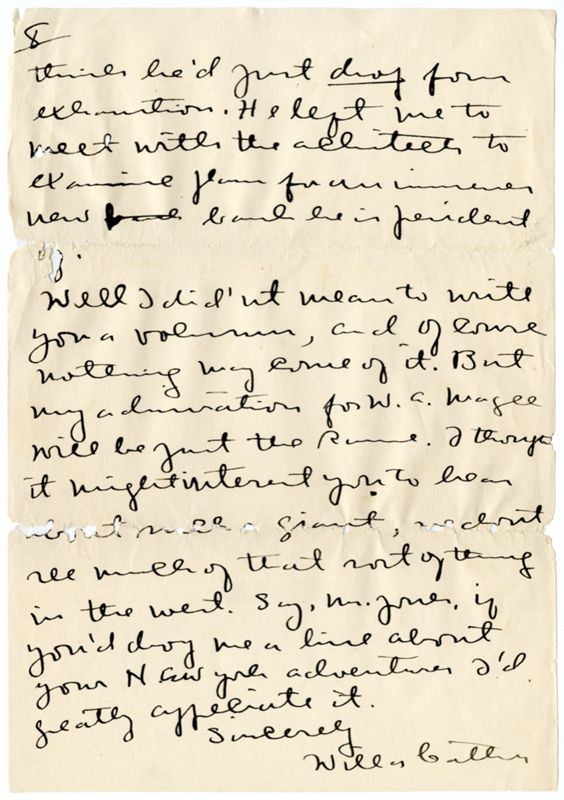 8
thinks he'd just drop from
exhaustion. He left me to
meet with the architects to
examine plans for an immense
new bank he is president
of.
Well I did'nt mean to write
you a volume, and of course
nothing may come of it. But
my admiration for W. A. Magee
will be just the same. I thought
it might interest you to hear
about such a giant, we don't
see much of that sort of thing
in the west. Say, Mr. Jones, if
you'd drop me a line about
your New York adventures I'd
greatly appreciate it.
Sincerely
Willa Cather